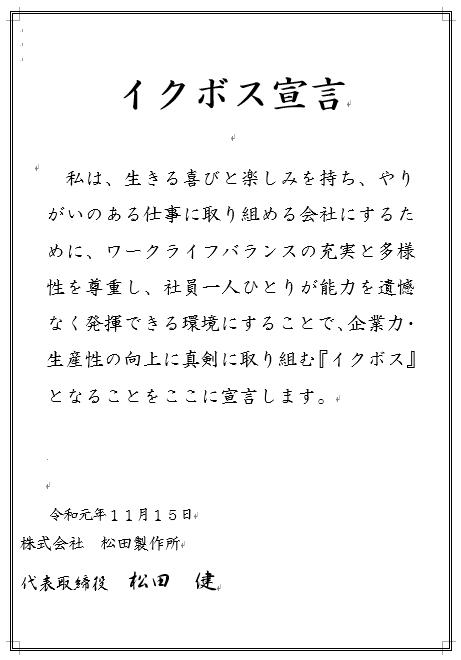 イクボス宣言
私は、生きる喜びと楽しみを持ち、やり
がいのある仕事に取り組める会社にするた
めに、ワークライフバランスの充実と多様
性を尊重し、社員一人ひとりが能力を遺憾
なく発揮できる環境にすることで、企業力・
生産性の向上に真剣に取り組む『イクボス』
となることをここに宣言します。
令和元年１１月１５日
株式会社　松田製作所
代表取締役　松田　健